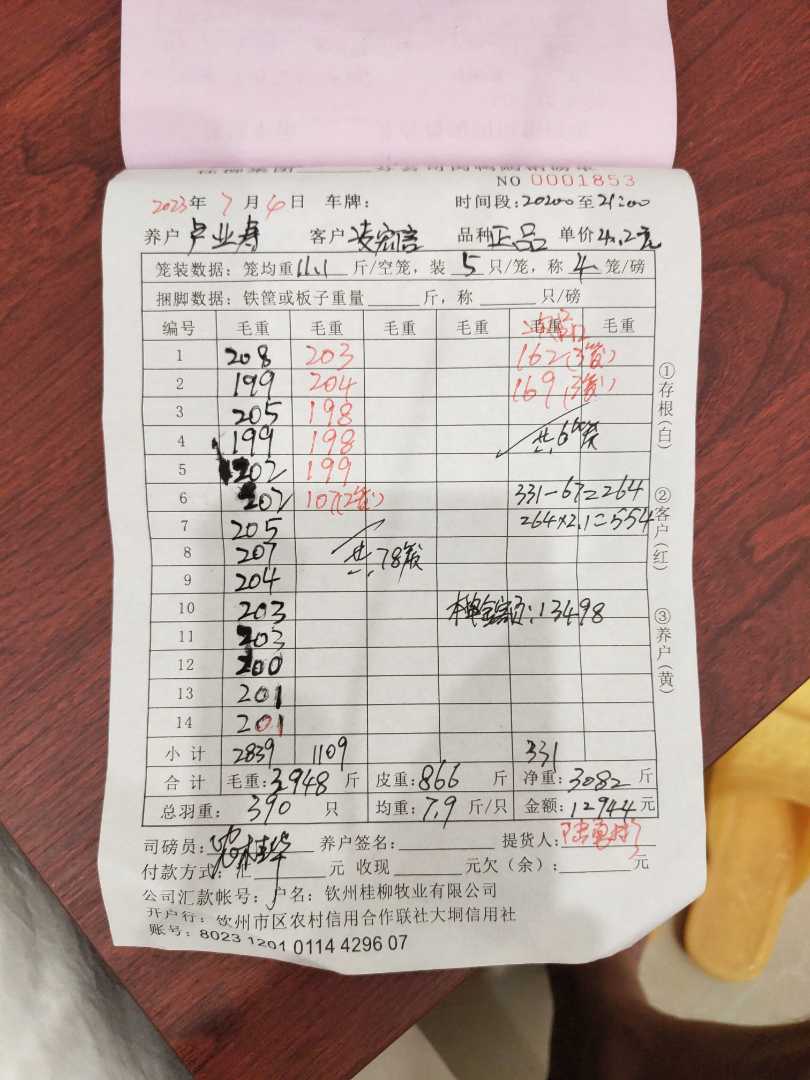 NO 0001853
2023年 7 月 4 日 车牌: 时间段: 20:00 至 21:00
养户 卢业寿 客户 凌宏信 品种 正品 单价 4.2元
笼装数据: 笼均重 11.1 斤/空笼, 装 5 只/笼, 称 4 笼/磅
捆脚数据: 铁筐或板子重量 斤, 称 只/磅
编号 毛重 毛重 毛重 毛重 毛重 毛重
1 208 203 162(3笼)
2 199 204 169(3笼)
3 205 198
4 199 198 共6笼
5 202 199
6 202 107(2笼) 331-67=264
7 205 264×2.1=554
8 207 共78笼
9 204
10 203 :13498
11 203
12 200
13 201
14 201
小计 2839 1109 331
合计 毛重: 3948 斤 皮重: 866 斤 净重: 3082 斤
总羽重: 390 只 均重: 7.9 斤/只 金额: 12944 元
司磅员: 养户签名: 提货人:
付款方式: 汇 元 收现 元欠(余): 元
公司汇款帐号: 户名: 钦州桂柳牧业有限公司
开户行: 钦州市区农村信用合作联社大垌信用社
账号: 8023 1201 0114 4296 07
①存根(白)
②客户(红)
③养户(黄)